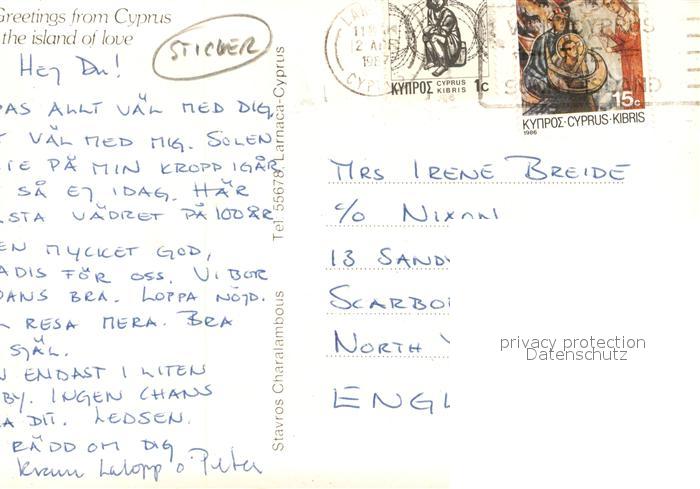 Greetings from Cyprus
the island of love
STICKER
Hej Du!
PAS ALLT VÄL MED DIG
VÄL MED MIG. SOLEN
PÅ MIN KROPP IGÅR
SÅ EJ IDAG. HÄR
STA VÄDRET PÅ 100 ÅR
EN MYCKET GOD,
ADIS FÖR OSS. VI BOR
DANS BRA. LOPPA NÖJD.
RESA MERA. BRA
SJÄL.
ENDAST I LITEN
BY. INGEN CHANS
A DIT. LEDSEN.
RÄDD OM DIG
Kram Lalopp o Peter
Stavros Charalambous
Tel. 55678, Larnaca-Cyprus
12 APR
1987
CYPRUS
ΚΥΠΡΟΣ CYPRUS KIBRIS 1c
15c
ΚΥΠΡΟΣ·CYPRUS·KIBRIS
1986
MRS IRENE BREIDE
c/o NIXON
13 SANDY
SCARBO
NORTH Y
ENGL
privacy protection
Datenschutz